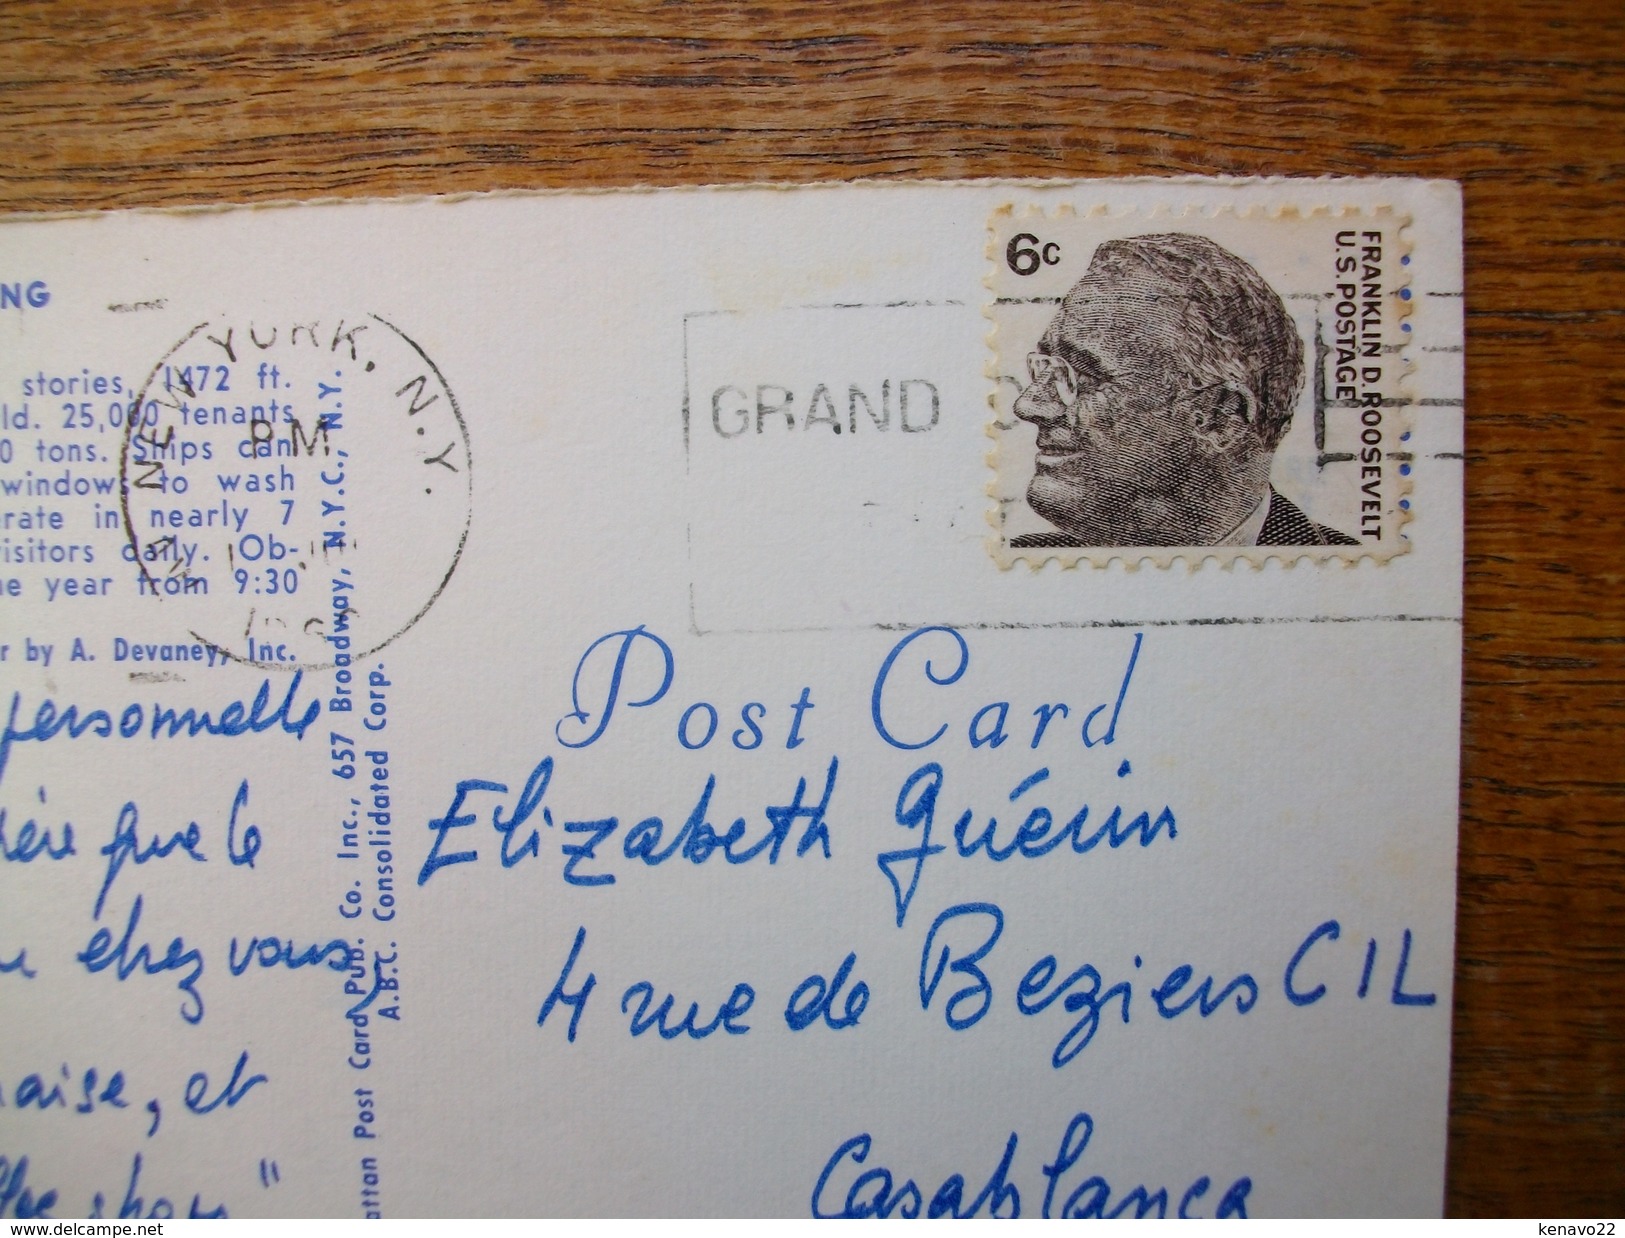 NG
stories, 1472 ft.
ld. 25,000 tenants
0 tons. Ships can
windows to wash
rate in nearly 7
isitors daily. Ob-
e year from 9:30
r by A. Devaney, Inc.
NEW YORK, N.Y.
PM
GRAND
6c
FRANKLIN D. ROOSEVELT
U.S. POSTAGE
attan Post Card Pub. Co. Inc., 657 Broadway, N.Y.C., N.Y.
A.B.C. Consolidated Corp.
Post Card
personnelle
que le
chez vous,
aise, et
Elizabeth Guérin
4 rue de Beziers CIL
Casablanca
delcampe.net
kenavo22